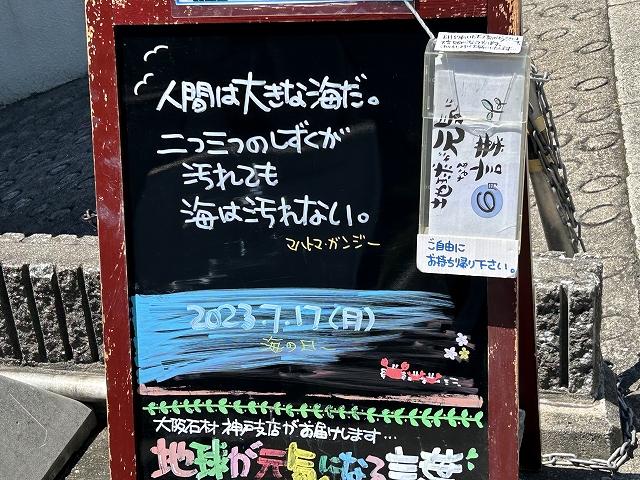 人間は大きな海だ。
二つ三つのしずくが
汚れても
海は汚れない。
マハトマ・ガンジー
2023.7.17(月)
海の日
ご自由に
お持ち帰り下さい。
大阪石材 神戸支店がお届けします…
地球が元気になる言葉